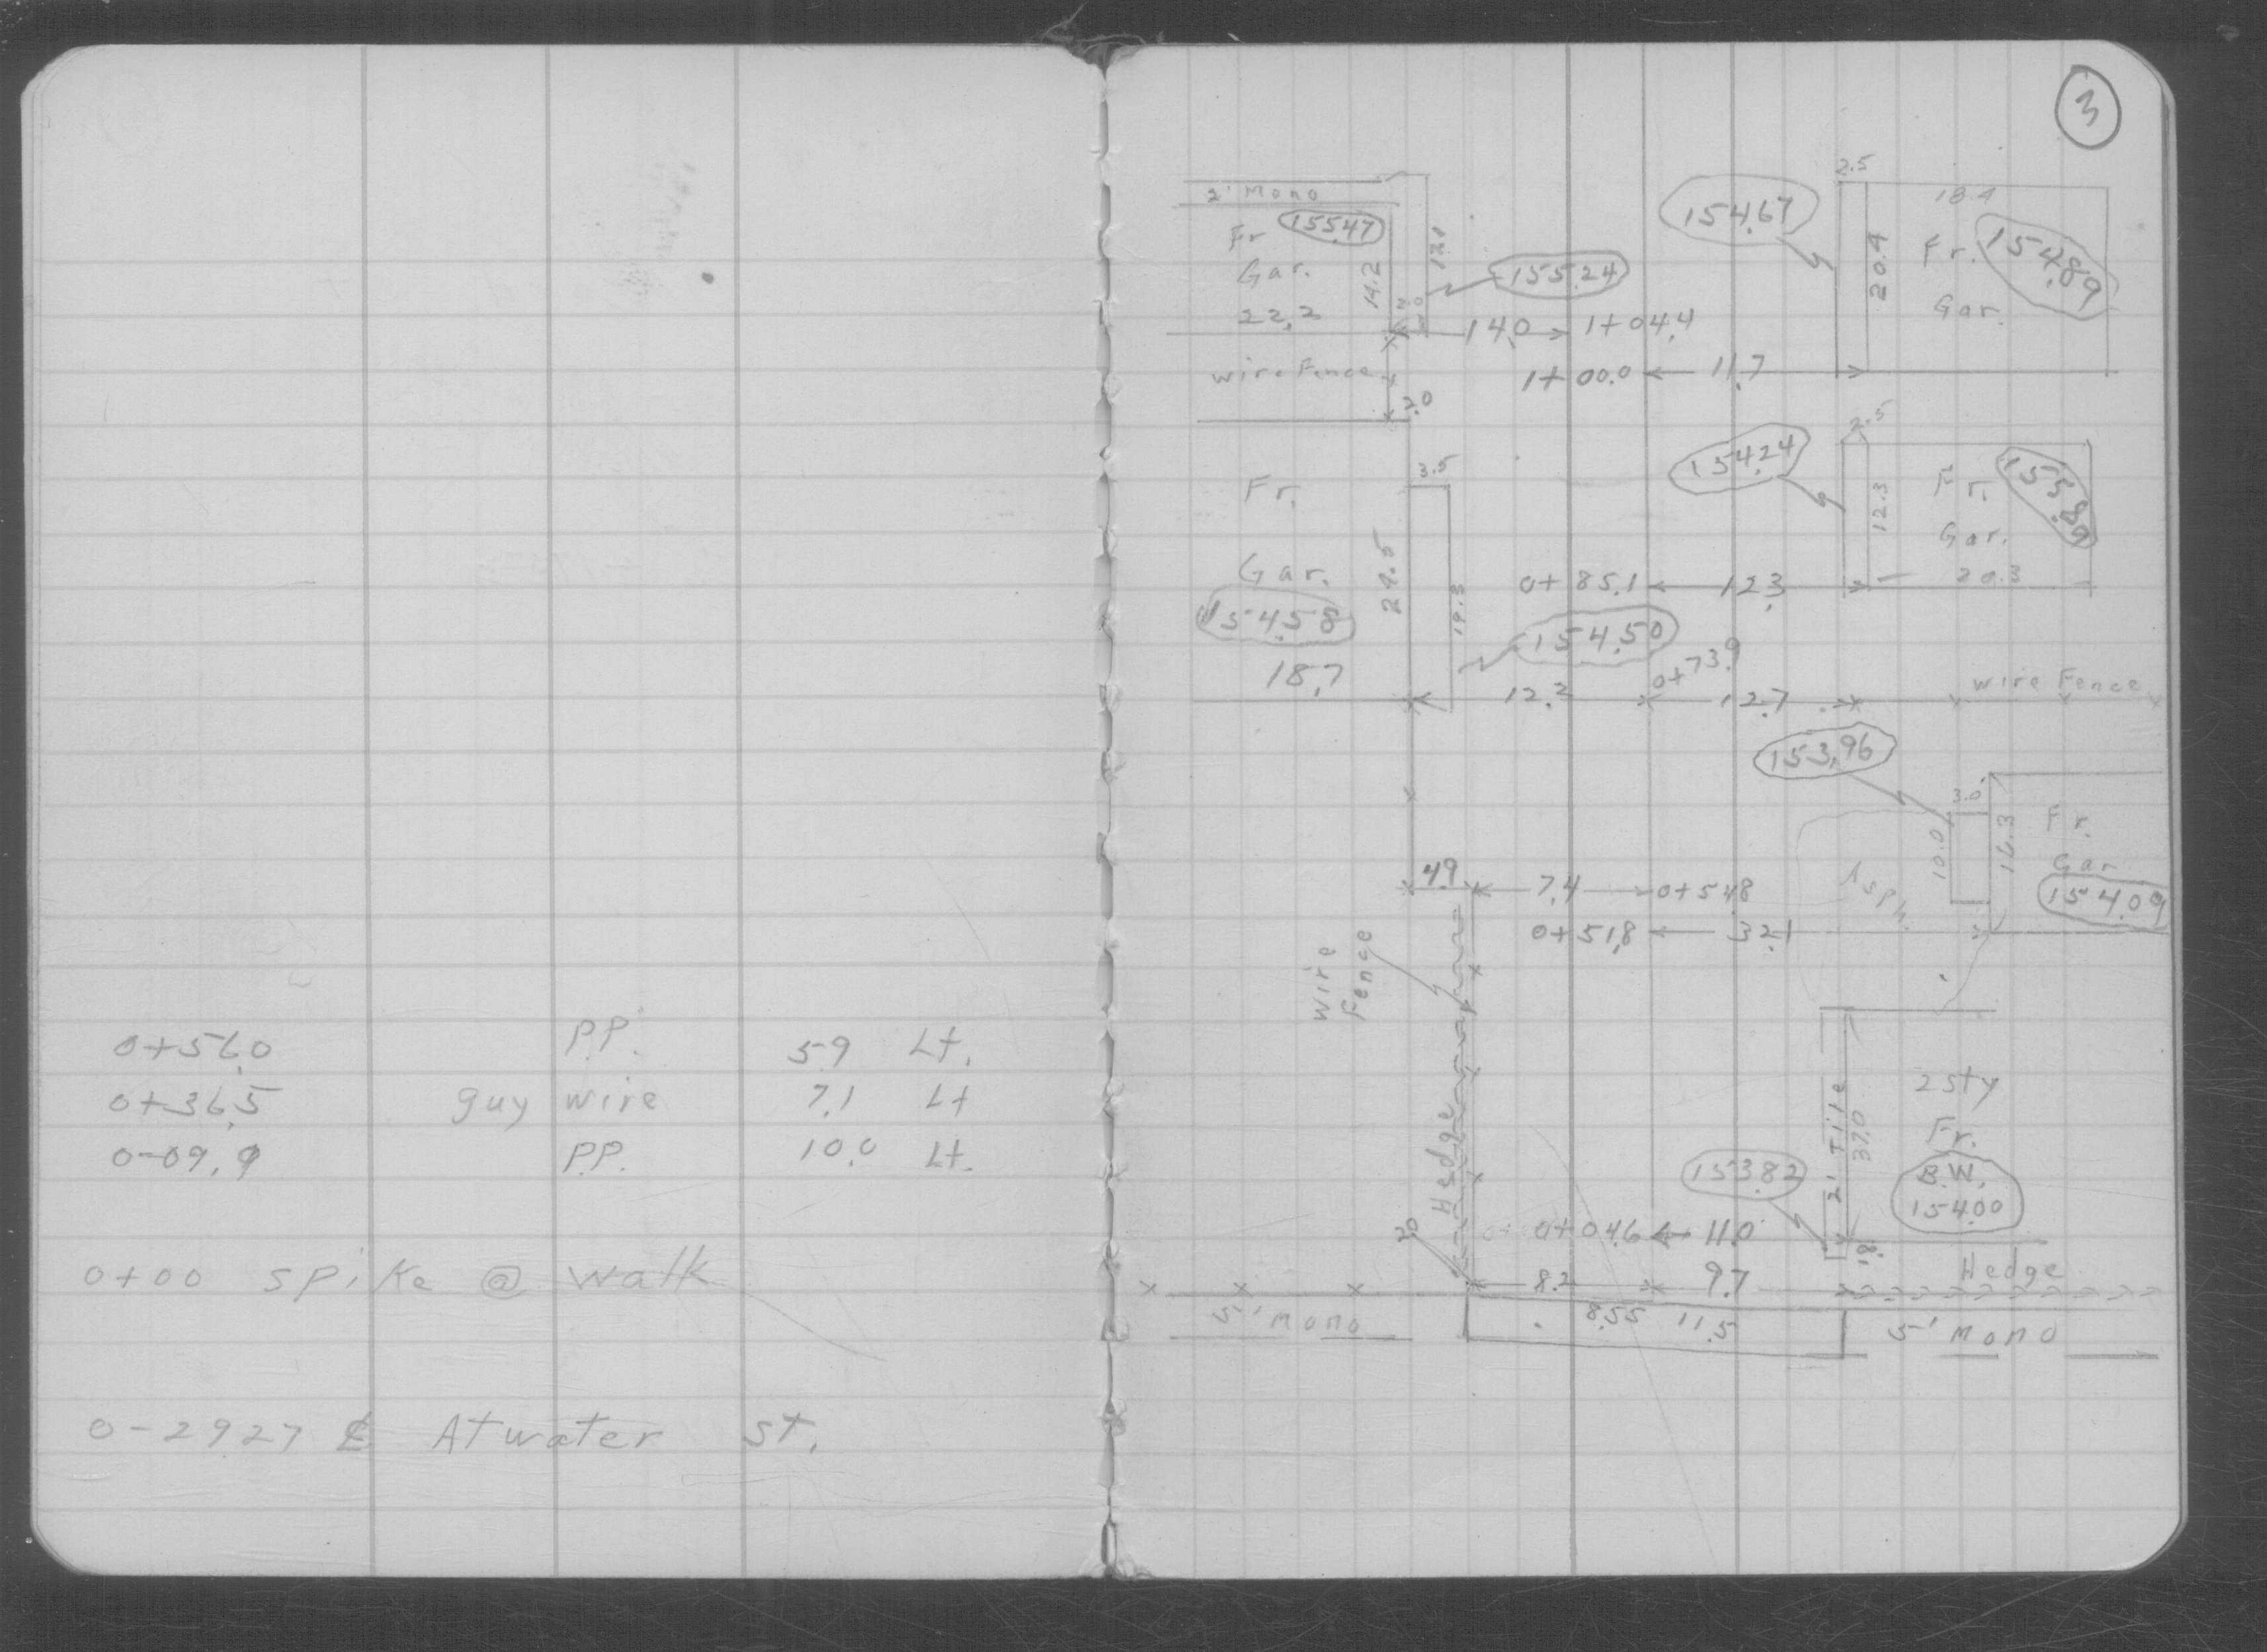 0+56.0 P.P. 5.9 Lt.
0+36.5 guy wire 7.1 Lt
0-09.9 P.P. 10.0 Lt.
0+00 spike @ walk
0-29.27 ₵ Atwater st.
3
2' Mono
Fr 155.47
Gar.
22.2
14.2
155.24
14.0 → 1+04.4
wire Fence
2.0
154.67
2.5
18.4
20.4
Fr. 154.89
Gar.
1+00.0 ← 11.7
Fr.
Gar.
154.58
18.7
24.5
3.5
19.3
154.50
154.24
2.5
12.3
Fr.
Gar.
0+85.1 ← 12.3
0+73.9
12.2
12.7
wire Fence
153.96
3.0
10.0
16.3
Fr.
Gar
154.09
Asph.
4.9
7.4 → 0+54.8
0+51.8 ← 32.1
wire
Fence
Hedge
2' Tile
37.0
2 sty
Fr.
B.W.
154.00
153.82
0+04.6 ← 11.0
1.8
20
8.2
9.7
Hedge
5' mono
8.55 11.5
5' mono